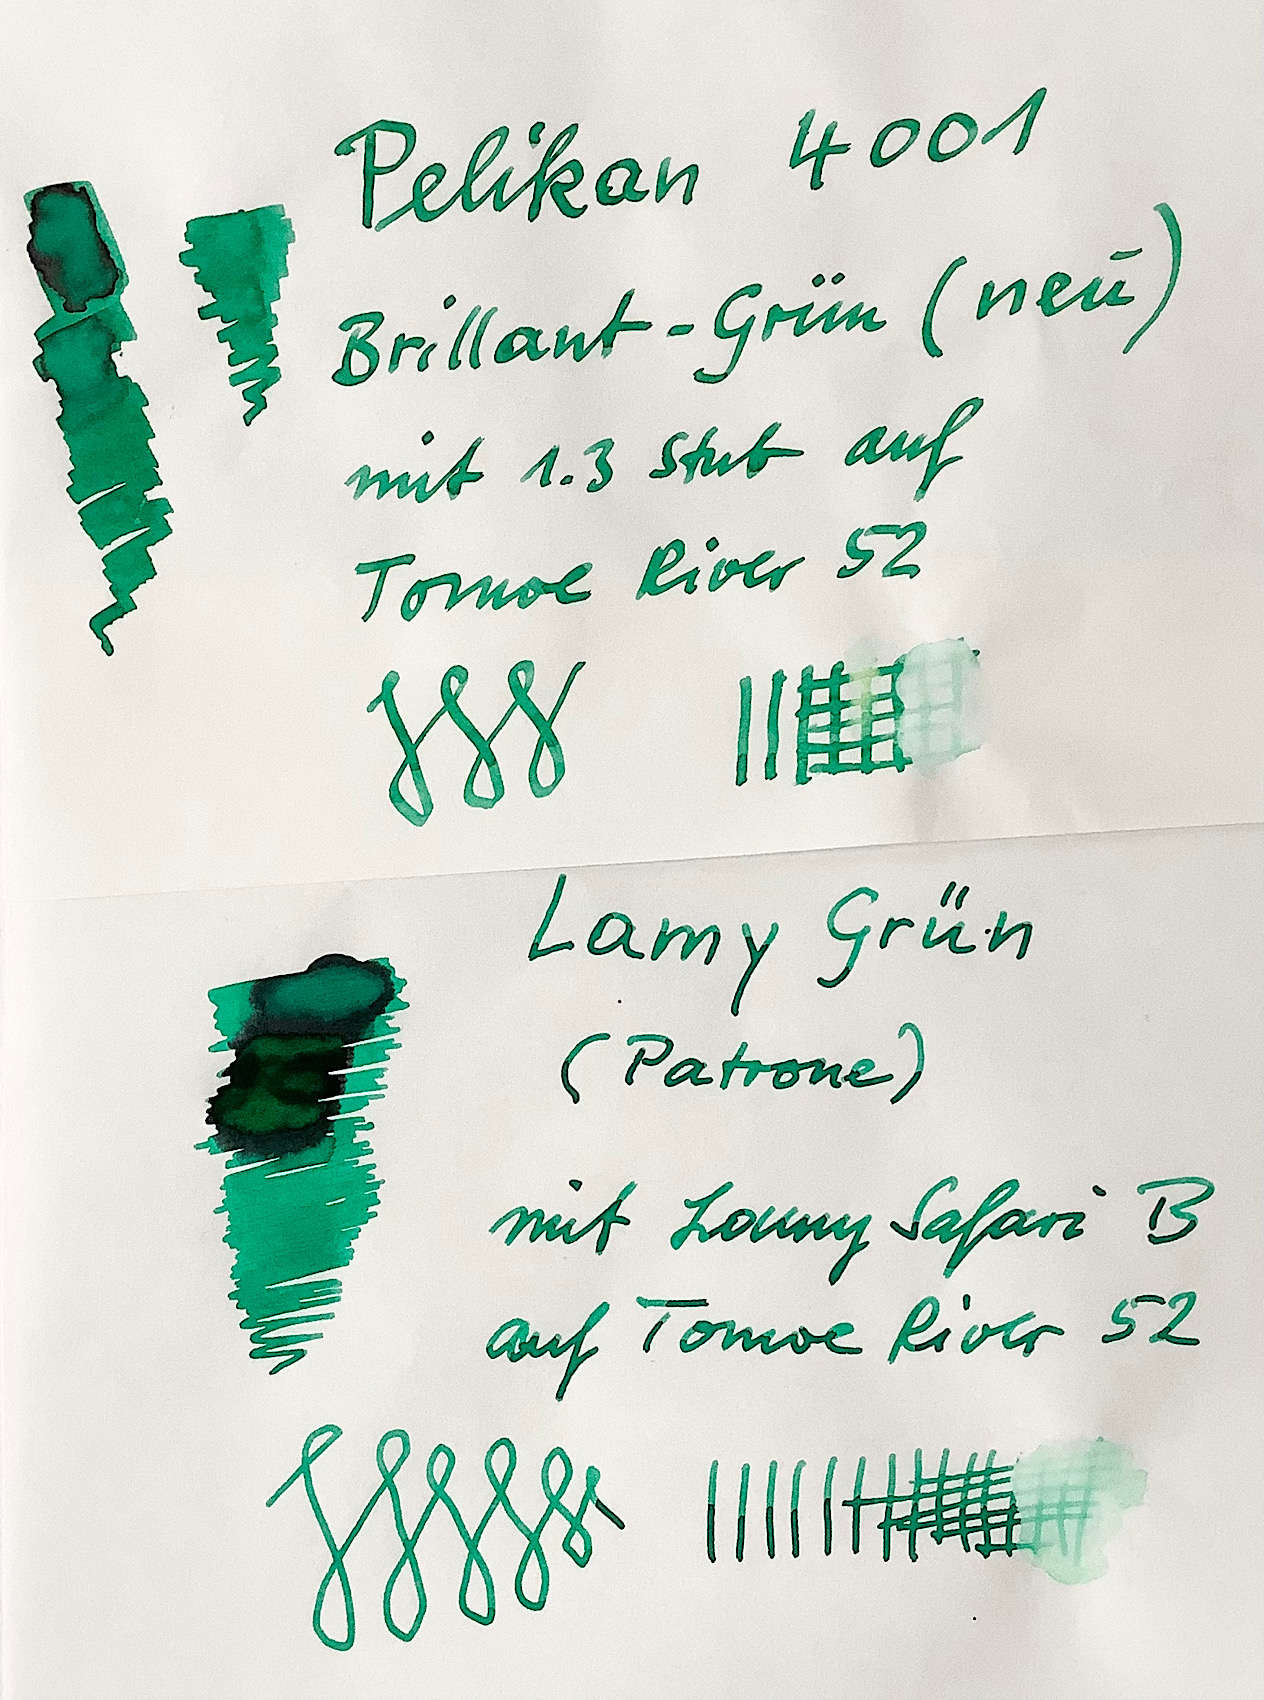 Pelikan 4001
Brillant-Grün (neu)
mit 1.3 Stub auf
Tomoe River 52
Lamy Grün
(Patrone)
mit Lamy Safari B
auf Tomoe River 52